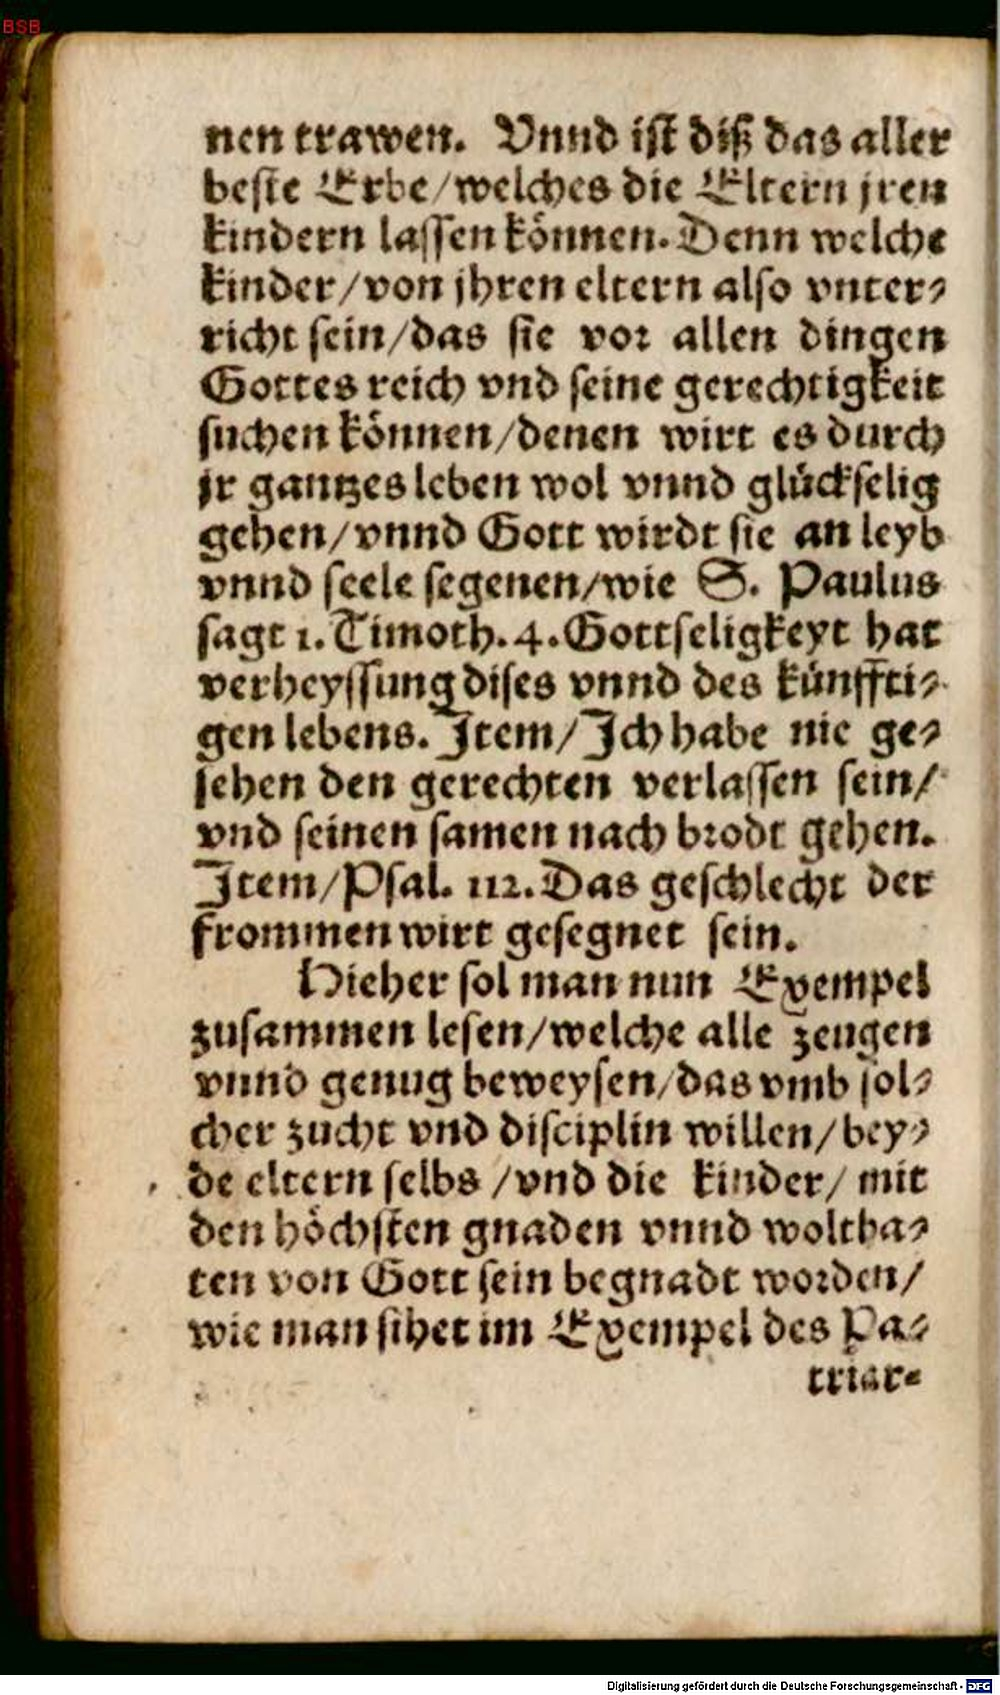 BSB
nen trawen. Vnnd ist diß das aller
beste Erbe/welches die Eltern jren
kindern lassen können. Denn welche
kinder/von jhren eltern also vnter-
richt sein/das sie vor allen dingen
Gottes reich vnd seine gerechtigkeit
suchen können/denen wirt es durch
jr gantzes leben wol vnnd glückselig
gehen/vnnd Gott wirdt sie an leyb
vnnd seele segenen/wie S. Paulus
sagt 1. Timoth. 4. Gottseligkeyt hat
verheyssung dises vnnd des künffti-
gen lebens. Item/Ich habe nie ge-
sehen den gerechten verlassen sein/
vnd seinen samen nach brodt gehen.
Item/Psal. 112. Das geschlecht der
frommen wirt gesegnet sein.
Hieher sol man nun Exempel
zusammen lesen/welche alle zeugen
vnnd genug beweysen/das vmb sol-
cher zucht vnd disciplin willen/bey-
de eltern selbs/vnd die kinder/mit
den höchsten gnaden vnnd woltha-
ten von Gott sein begnadt worden/
wie man sihet im Exempel des Pa-
triar-
Digitalisierung gefördert durch die Deutsche Forschungsgemeinschaft - DFG